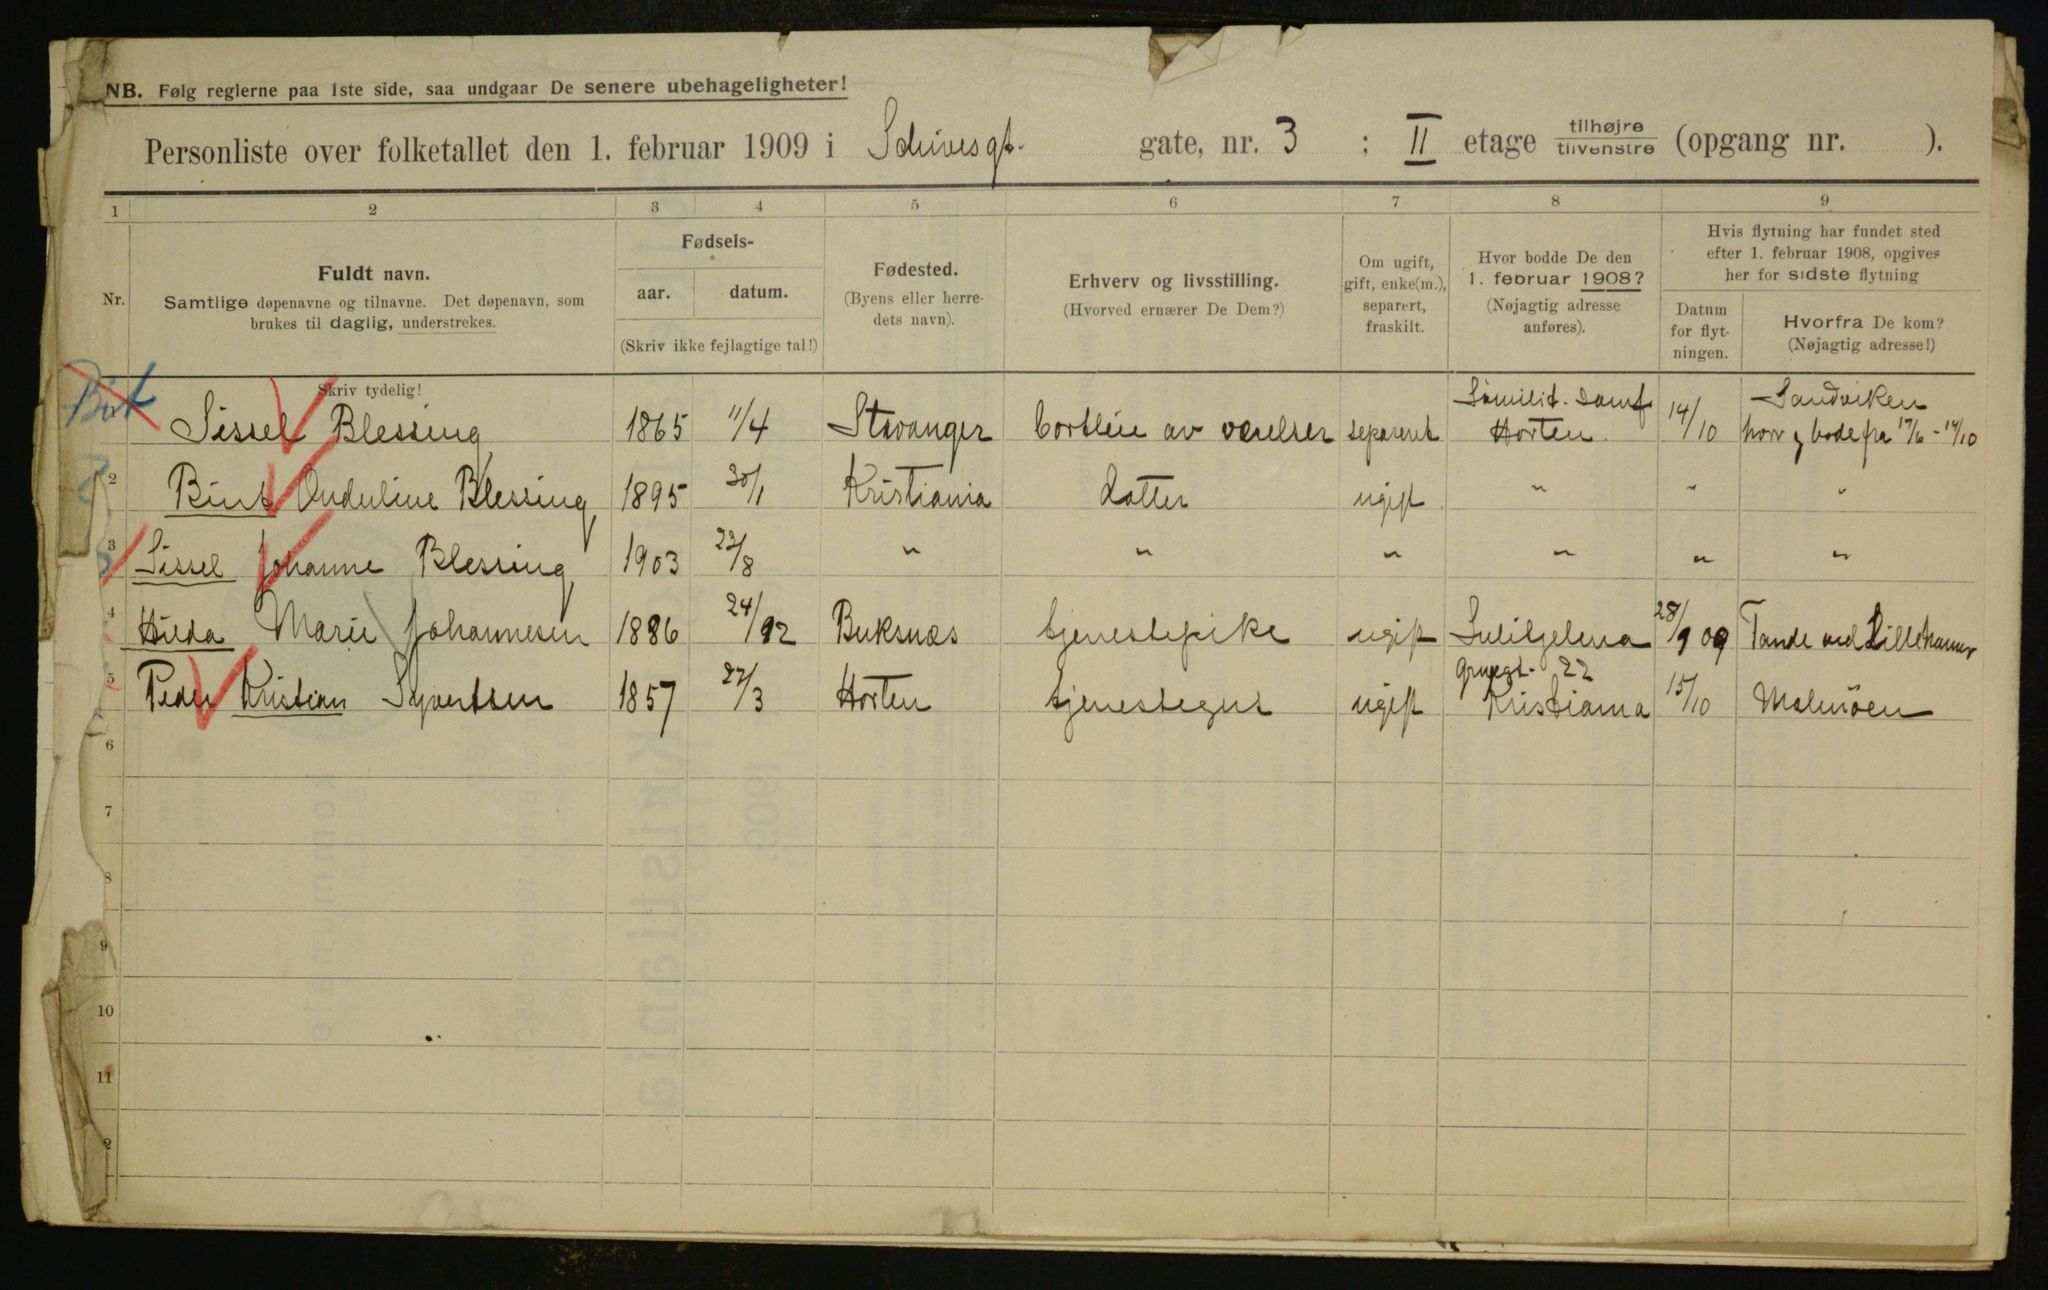 NB. Følg reglerne paa 1ste side, saa undgaar De senere ubehageligheter!
Personliste over folketallet den 1. februar 1909 i Schivesgt. gate, nr. 3 ; II etage tilhøjre tilvenstre (opgang nr. ).
1 2 3 4 5 6 7 8 9
Nr.
Fuldt navn.
Samtlige døpenavne og tilnavne. Det døpenavn, som
brukes til daglig, understrekes.
Skriv tydelig!
Fødsels-
aar. datum.
(Skriv ikke fejlagtige tal!)
Fødested.
(Byens eller herre-
dets navn).
Erhverv og livsstilling.
(Hvorved ernærer De Dem?)
Om ugift,
gift, enke(m.),
separert,
fraskilt.
Hvor bodde De den
1. februar 1908?
(Nøjagtig adresse
anføres).
Hvis flytning har fundet sted
efter 1. februar 1908, opgives
her for sidste flytning
Datum
for flyt-
ningen.
Hvorfra De kom?
(Nøjagtig adresse!)
Sissel Blessing 1865 11/4 Stavanger bortleie av værelser separert Horten 14/10 Sandviken
2 Birit Onduline Blessing 1895 30/1 Kristiania datter ugift " " "
3 Sissel Johanne Blessing 1903 23/8 " " " " " "
4 Hilda Marie Johannesen 1886 24/12 Buksnæs tjenestepike ugift Sulitjelma 28/1 09 Tande ved Lillehamer
5 Peder Kristian Syvertsen 1857 27/3 Horten tjenestegut ugift Kristiania 15/10 Malmöen
6
7
8
9
10
11
2